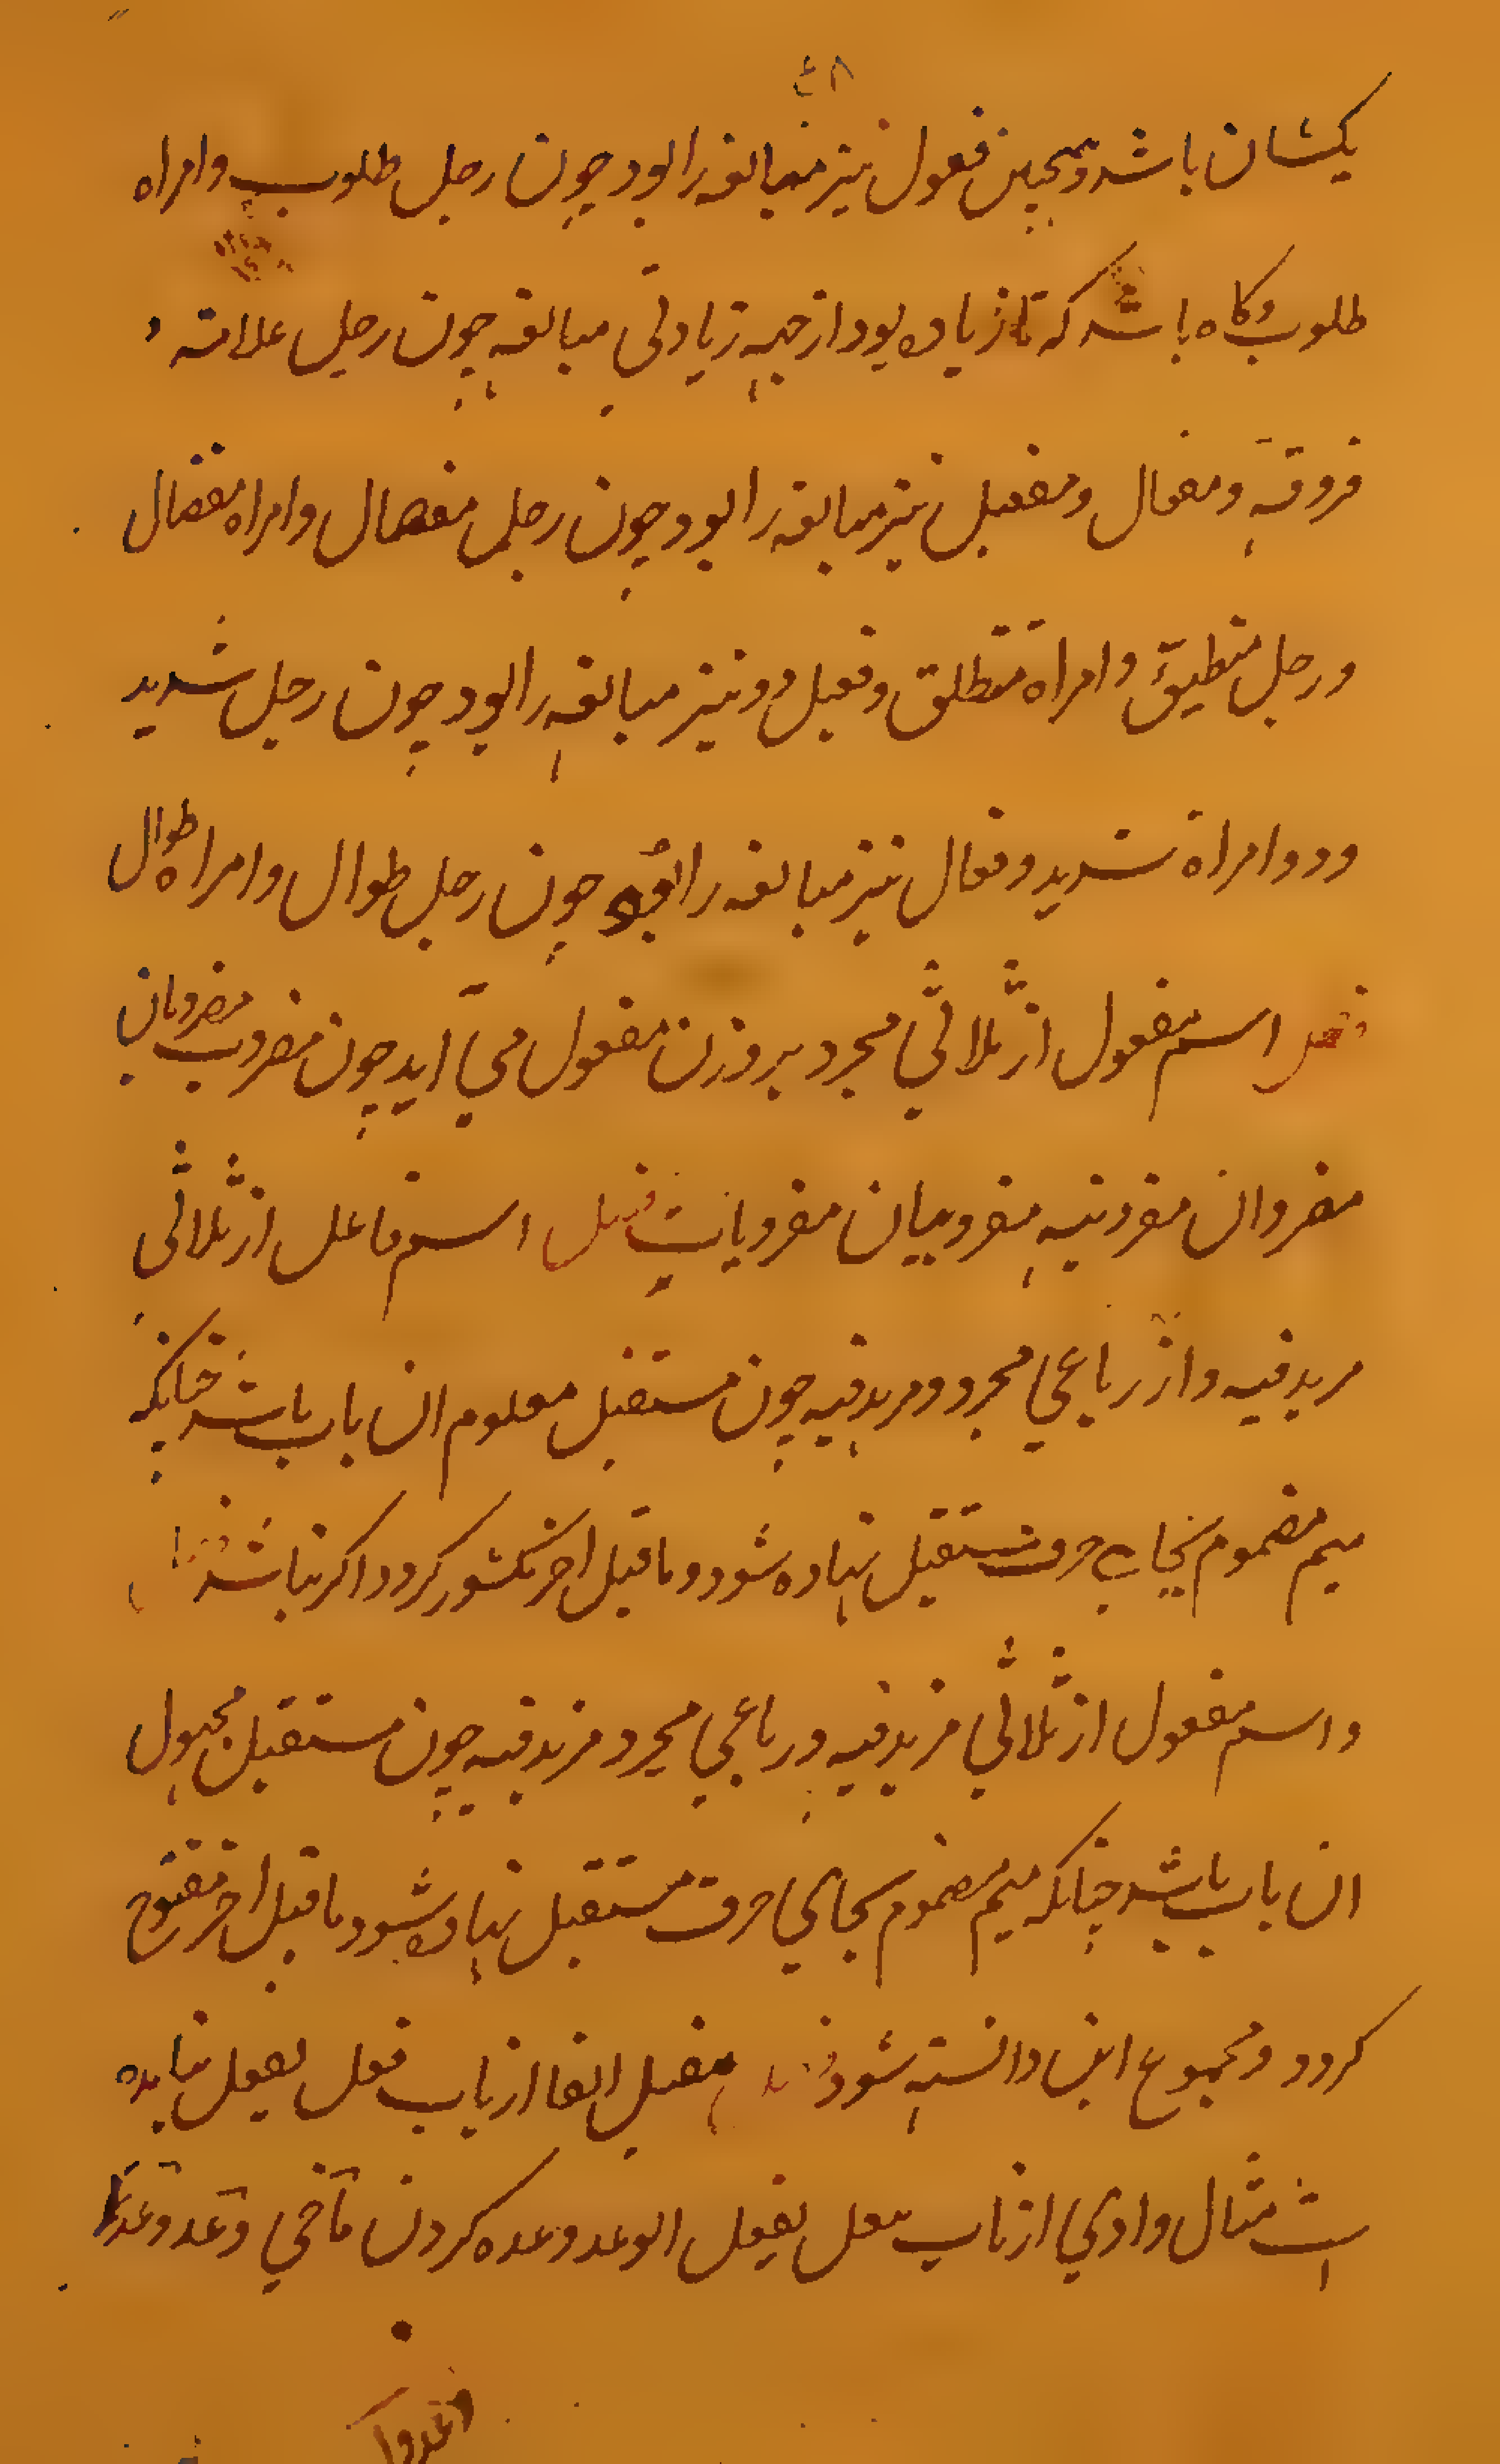 ٤٨
یکسان باشد و همچنین فعول نیز مبالغه را بود چون رجل طلوب وامراه
طلوب و کاه باشد که تا زیاده بود از جهه زیادتی مبالغه چون رجل علامته و
فروقه ومفعال ومفعیل نیز مبالغه را بود چون رجل مفضال وامراه مفضال
ورجل منطیق وامراة منطلق وفعیل دو نیز مبالغه را بود چون رجل شدید
ود وامراة شدید وفعال نیز مبالغه را بود چون رجل طوال وامراه طوال
فصل اسم مفعول از ثلاثی مجرد بر وزن مفعول می آید چون مضروب مضروبان
مضروان مضروبه مضروبیان مضروبات فصل اسم فاعل از ثلاثی
مرید فیه واز رباعی مجرد ومرید فیه چون مستقبل معلوم ان باب باشد چنانکه
میم مضموم بجای حرف مستقبل نهاده شود وما قبل اخر مکسور کردد اکر نباشد
واسم مفعول از ثلاثی مزید فیه ورباعی مجرد مزید فیه چون مستقبل مجهول
ان باب باشد چنانکه میم مضموم بجای حرف مستقبل نهاده شود ما قبل اخر مفتوح
کردد ومجموع این دانسته شود الفا از باب فعل یفعل نیامده
است مثال واوی از باب فعل یفعل الوعد وعده کردن ماضی وعد وعدا
وعدوا